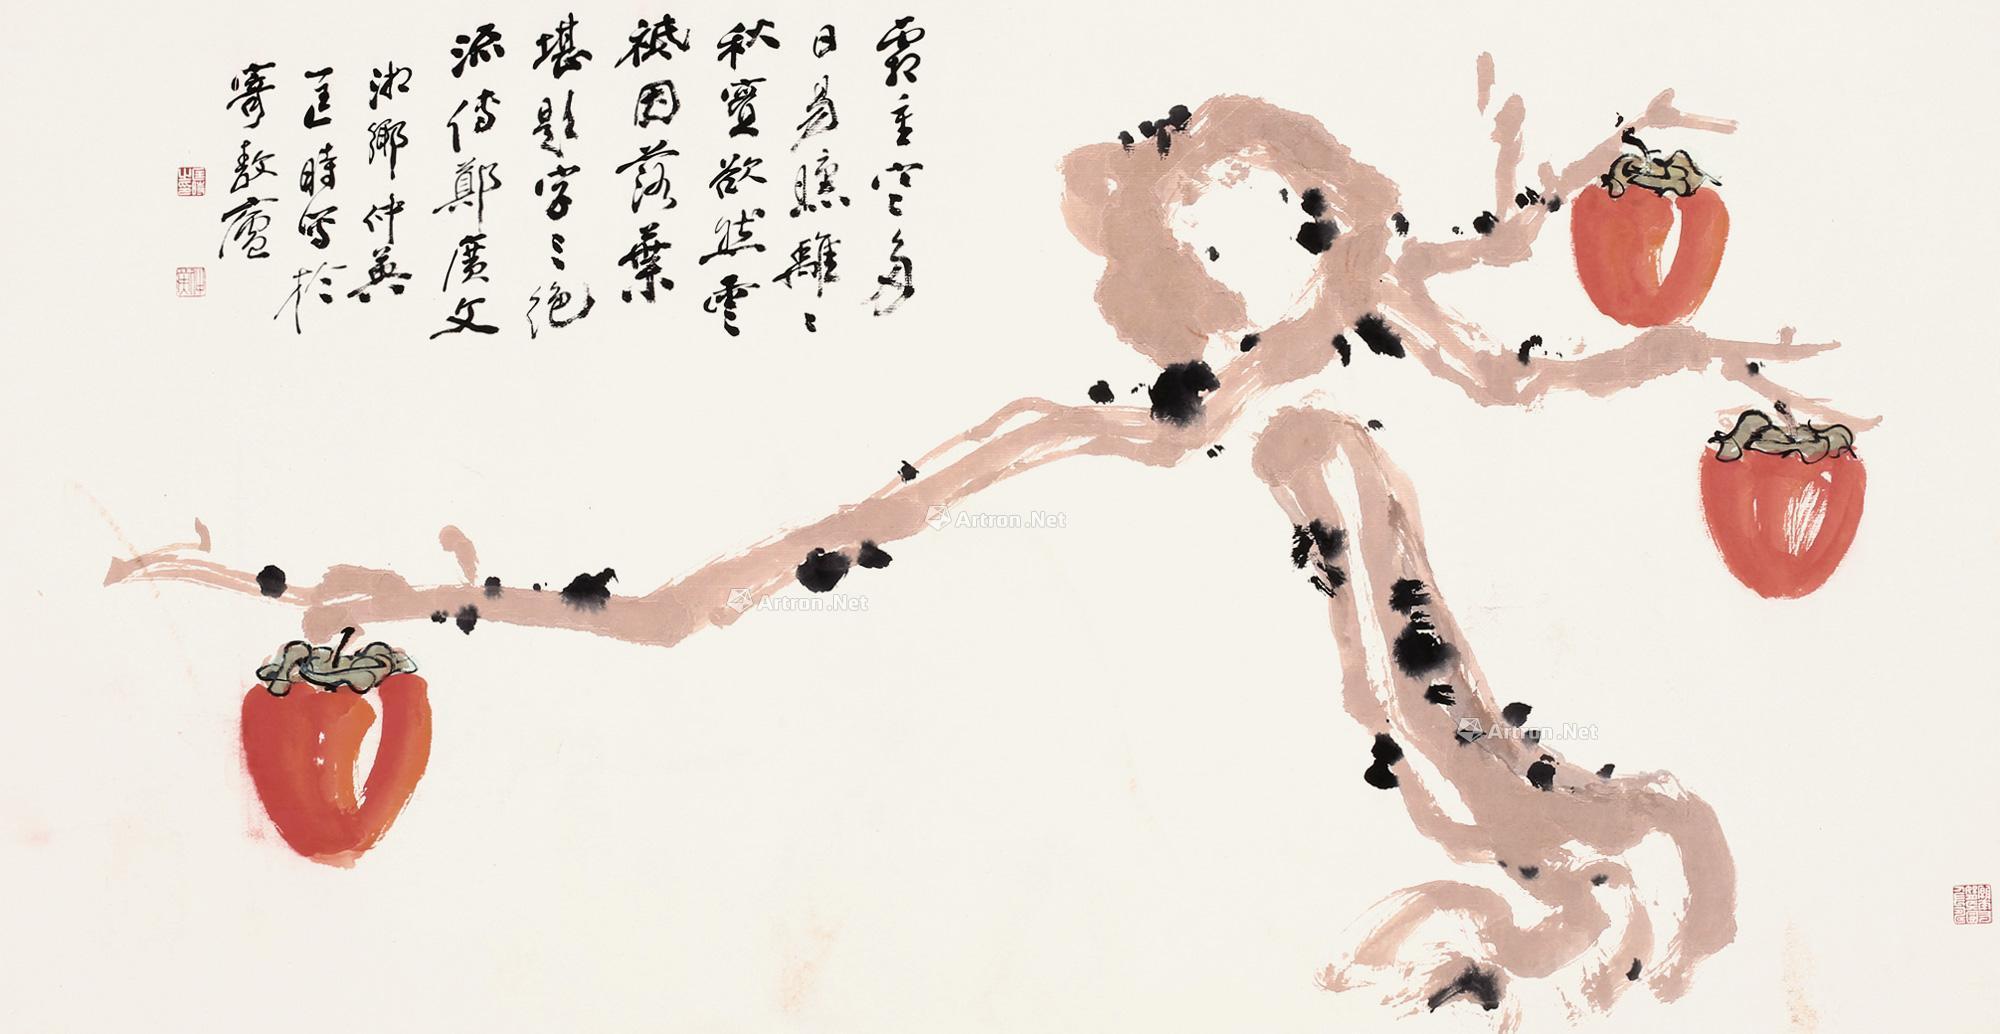 霜重寒多
日易曛離〻
秋實欲然雲
祇因落葉
堪題字三絕
流傳鄭廣文
湘鄉仲英
一匡時寫於
寄敖廬
Artron.Net
Artron.Net
Artron.Net